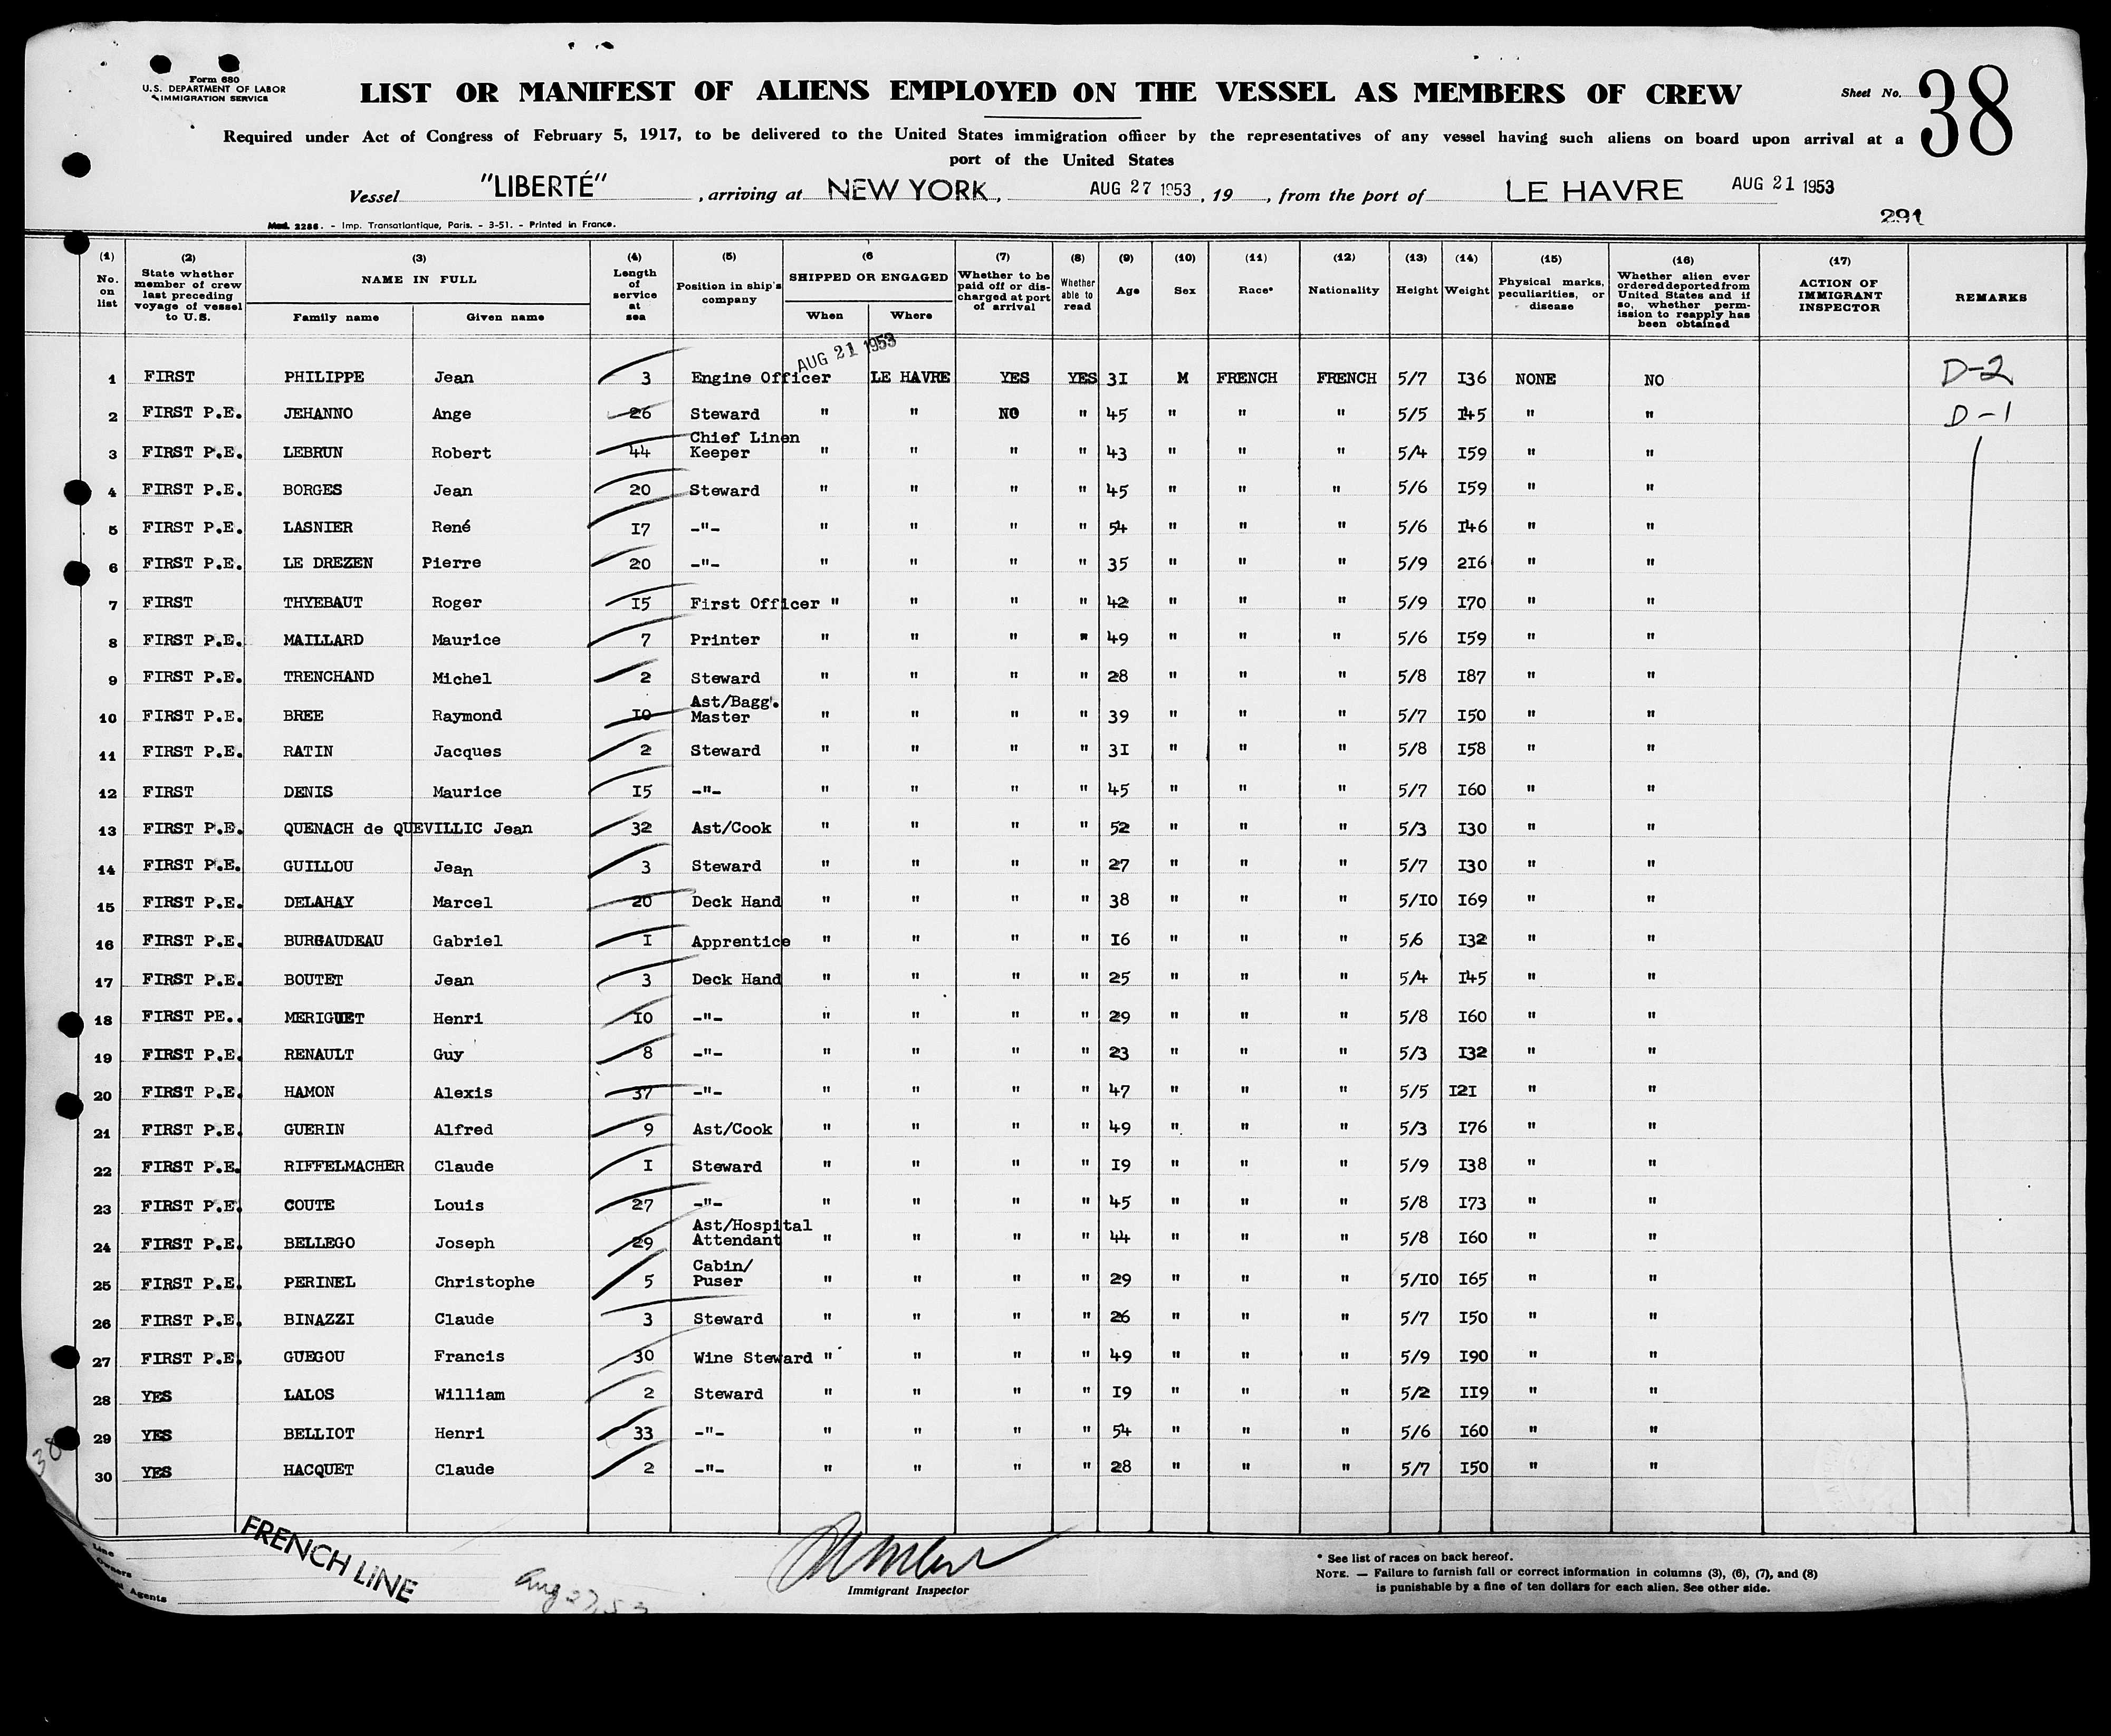 Form 680
U.S. DEPARTMENT OF LABOR
IMMIGRATION SERVICE
LIST OR MANIFEST OF ALIENS EMPLOYED ON THE VESSEL AS MEMBERS OF CREW
Sheet No. 38
Required under Act of Congress of February 5, 1917, to be delivered to the United States immigration officer by the representatives of any vessel having such aliens on board upon arrival at a
port of the United States
Vessel "LIBERTÉ", arriving at NEW YORK, AUG 27 1953, 19 , from the port of LE HAVRE AUG 21 1953
Mod. 2286. - Imp. Transatlantique, Paris. - 3-51. - Printed in France.
291
(1) No. on list (2) State whether member of crew last preceding voyage of vessel to U.S. (3) NAME IN FULL Family name Given name (4) Length of service at sea (5) Position in ship's company (6 SHIPPED OR ENGAGED When Where (7) Whether to be paid off or discharged at port of arrival (8) Whether able to read (9) Age (10) Sex (11) Race* (12) Nationality (13) Height (14) Weight (15) Physical marks, peculiarities, or disease (16) Whether alien ever ordered deported from United States and if so, whether permission to reapply has been obtained (17) ACTION OF IMMIGRANT INSPECTOR REMARKS
AUG 21 1953
1 FIRST PHILIPPE Jean 3 Engine Officer LE HAVRE YES YES 31 M FRENCH FRENCH 5/7 136 NONE NO D-2
2 FIRST P.E. JEHANNO Ange 26 Steward " " NO " 45 " " " 5/5 145 " " D-1
3 FIRST P.E. LEBRUN Robert 44 Chief Linen Keeper " " " " 43 " " " 5/4 159 " "
4 FIRST P.E. BORGES Jean 20 Steward " " " " 45 " " " 5/6 159 " "
5 FIRST P.E. LASNIER René 17 -"- " " " " 54 " " " 5/6 146 " "
6 FIRST P.E. LE DREZEN Pierre 20 -"- " " " " 35 " " " 5/9 216 " "
7 FIRST THYEBAUT Roger 15 First Officer " " " " 42 " " " 5/9 170 " "
8 FIRST P.E. MAILLARD Maurice 7 Printer " " " " 49 " " " 5/6 159 " "
9 FIRST P.E. TRENCHAND Michel 2 Steward " " " " 28 " " " 5/8 187 " "
10 FIRST P.E. BREE Raymond 10 Ast/Bagg. Master " " " " 39 " " " 5/7 150 " "
11 FIRST P.E. RATIN Jacques 2 Steward " " " " 31 " " " 5/8 158 " "
12 FIRST DENIS Maurice 15 -"- " " " " 45 " " " 5/7 160 " "
13 FIRST P.E. QUENACH de QUEVILLIC Jean 32 Ast/Cook " " " " 52 " " " 5/3 130 " "
14 FIRST P.E. GUILLOU Jean 3 Steward " " " " 27 " " " 5/7 130 " "
15 FIRST P.E. DELAHAY Marcel 20 Deck Hand " " " " 38 " " " 5/10 169 " "
16 FIRST P.E. BURGAUDEAU Gabriel 1 Apprentice " " " " 16 " " " 5/6 132 " "
17 FIRST P.E. BOUTET Jean 3 Deck Hand " " " " 25 " " " 5/4 145 " "
18 FIRST PE.. MERIGUET Henri 10 -"- " " " " 29 " " " 5/8 160 " "
19 FIRST P.E. RENAULT Guy 8 -"- " " " " 23 " " " 5/3 132 " "
20 FIRST P.E. HAMON Alexis 37 -"- " " " " 47 " " " 5/5 121 " "
21 FIRST P.E. GUERIN Alfred 9 Ast/Cook " " " " 49 " " " 5/3 176 " "
22 FIRST P.E. RIFFELMACHER Claude 1 Steward " " " " 19 " " " 5/9 138 " "
23 FIRST P.E. COUTE Louis 27 -"- " " " " 45 " " " 5/8 173 " "
24 FIRST P.E. BELLEGO Joseph 29 Ast/Hospital Attendant " " " " 44 " " " 5/8 160 " "
25 FIRST P.E. PERINEL Christophe 5 Cabin/ Puser " " " " 29 " " " 5/10 165 " "
26 FIRST P.E. BINAZZI Claude 3 Steward " " " " 26 " " " 5/7 150 " "
27 FIRST P.E. GUEGOU Francis 30 Wine Steward " " " " 49 " " " 5/9 190 " "
28 YES LALOS William 2 Steward " " " " 19 " " " 5/2 119 " "
29 YES BELLIOT Henri 33 -"- " " " " 54 " " " 5/6 160 " "
30 YES HACQUET Claude 2 -"- " " " " 28 " " " 5/7 150 " "
38
Line
Owners
Agents
FRENCH LINE
Aug 27, 53
Immigrant Inspector
* See list of races on back hereof.
NOTE. — Failure to furnish full or correct information in columns (3), (6), (7), and (8)
is punishable by a fine of ten dollars for each alien. See other side.